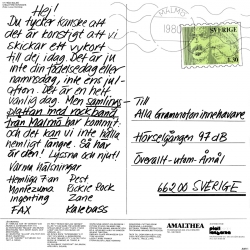 Hej!
Du tycker kanske att
det är konstigt att vi
skickar ett vykort
till dej idag. Det är ju
inte din födelsedag eller
namnsdag, inte ens jul-
afton. Det är en helt
vanlig dag. Men samlings-
plattan med rockband
från Malmö har kommit
och det kan vi inte hålla
hemligt längre. Så här
är den! Lyssna och njut!
Varma hälsningar
Hemliga 7an Pest
Montezuma Rickie Rock
ingenting Zane
FAX Kalebass
MALMÖ
1980
SVERIGE
1.30
Till
Alla Grammofoninnehavare
Hörselgången 97 dB
Överallt-utom-Åmål
66200 SVERIGE
AMALTHEA